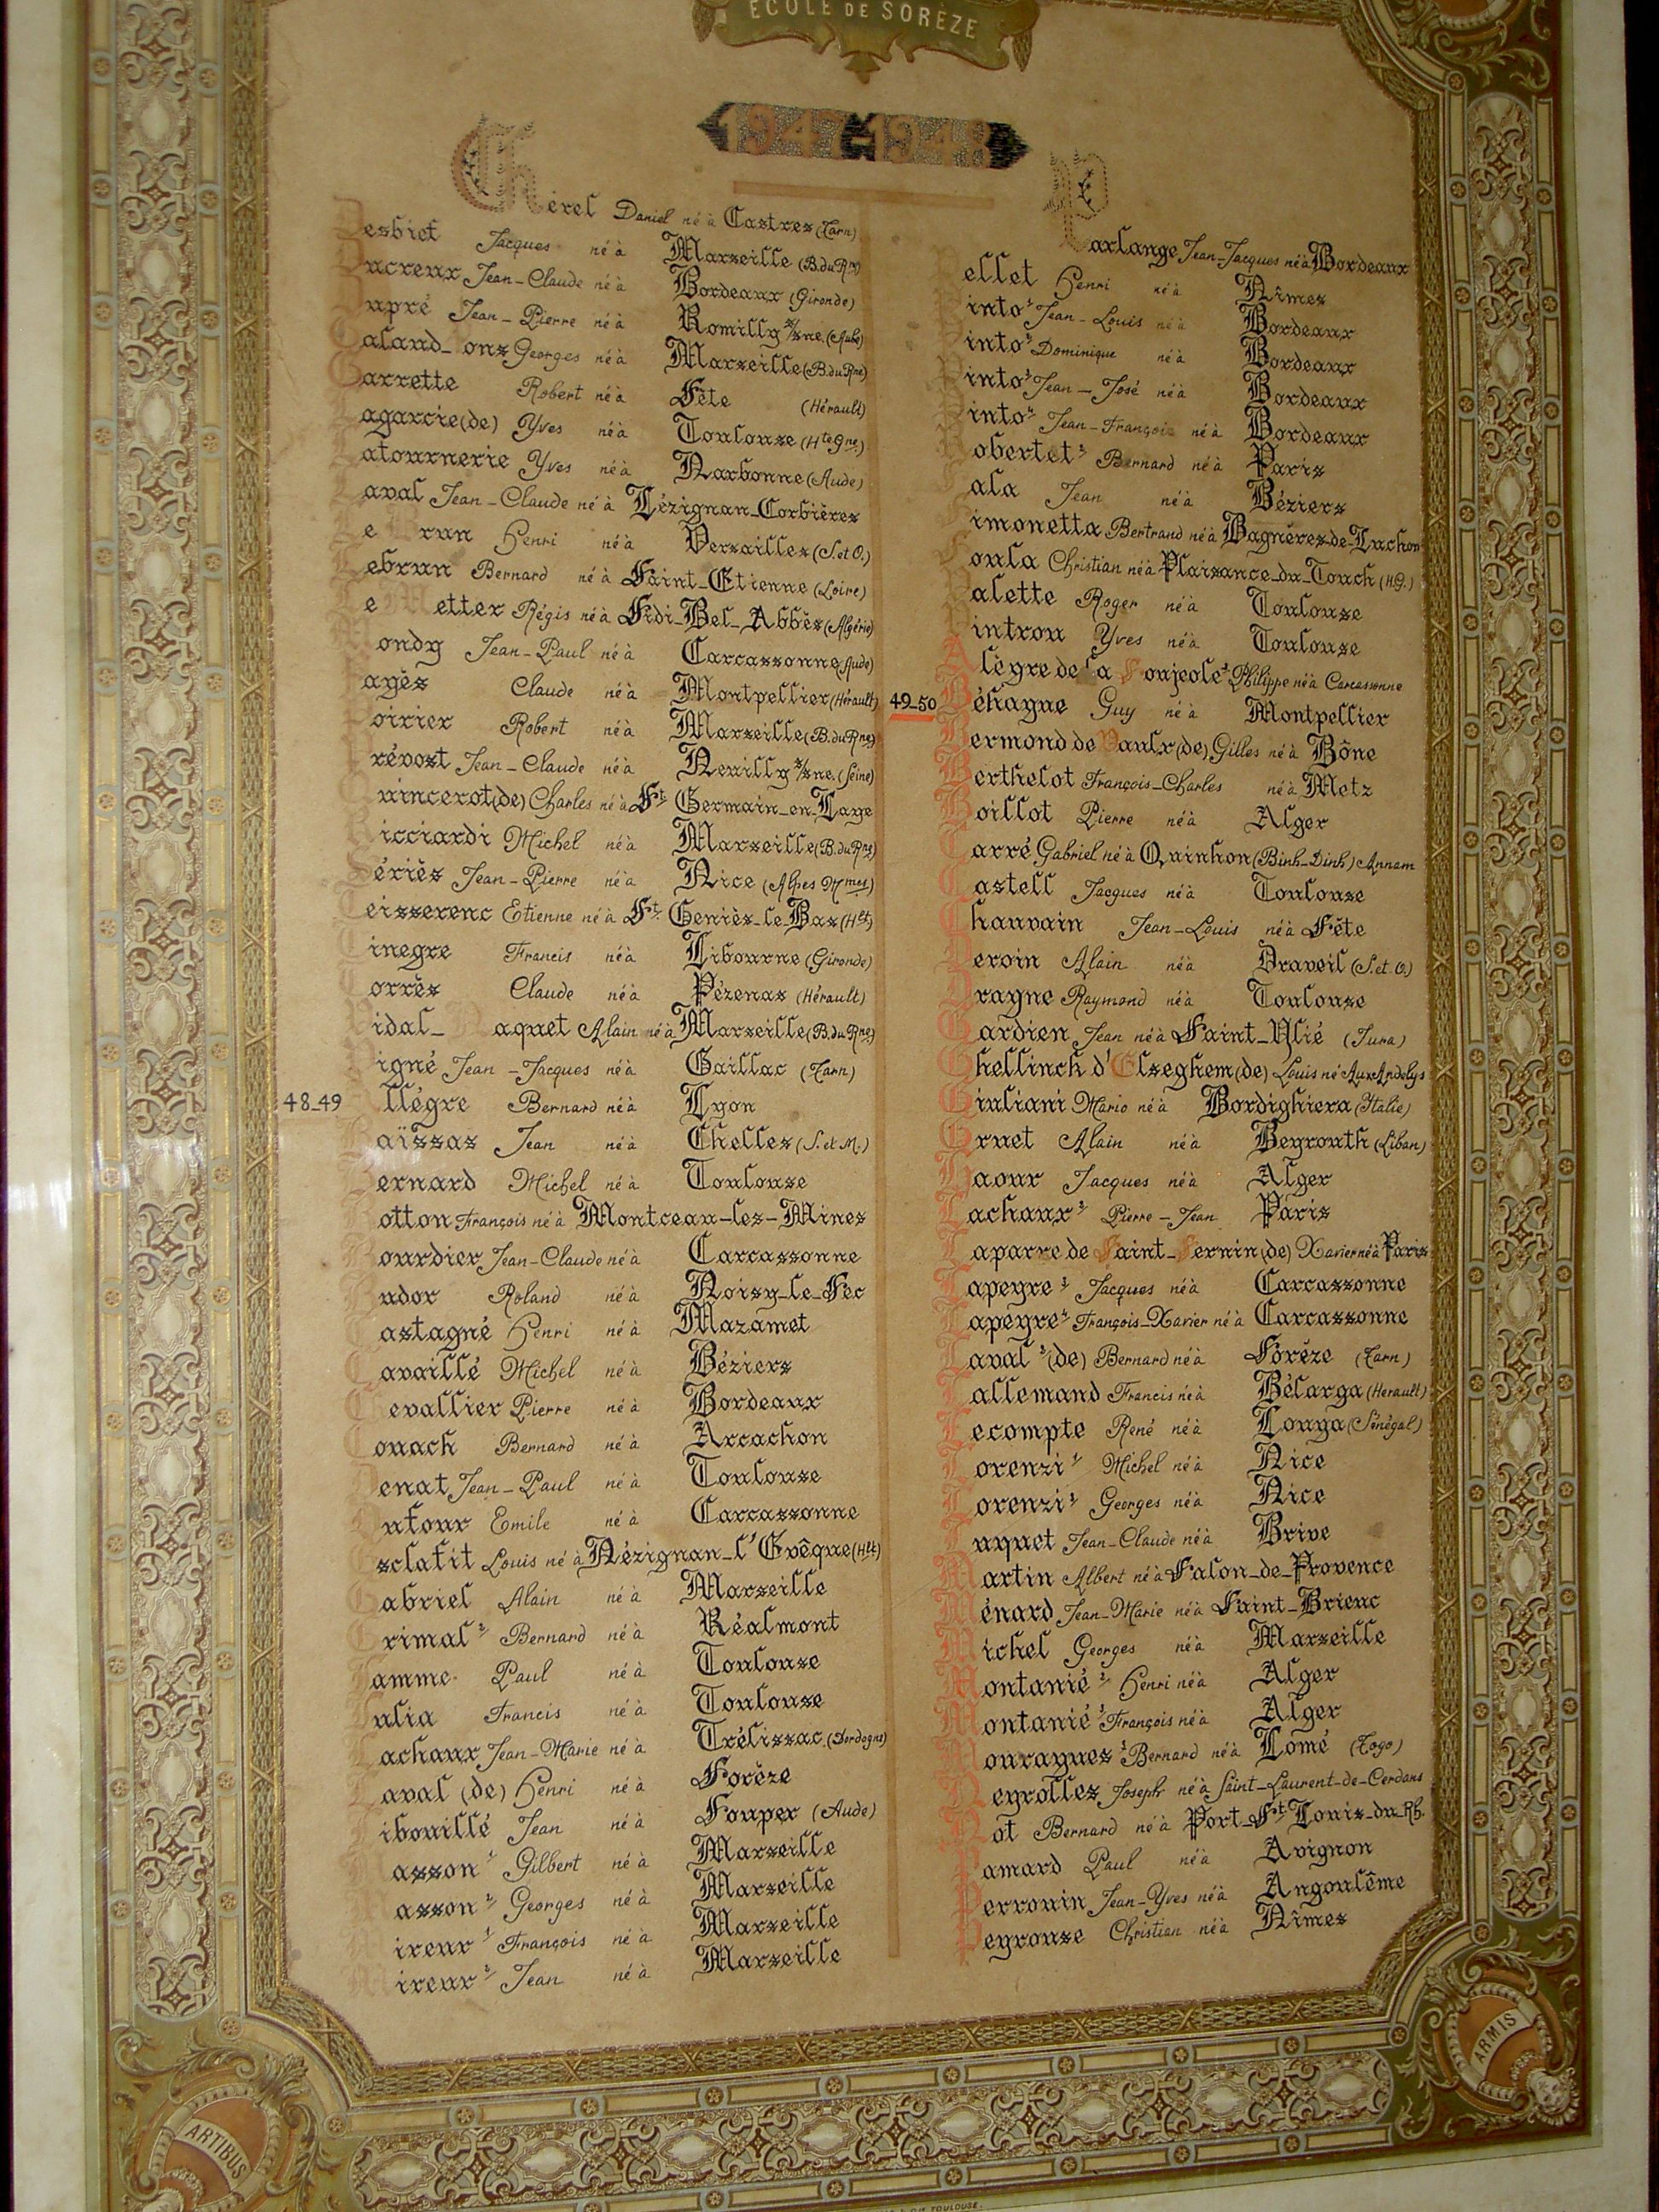 ECOLE DE SORÈZE
1947-1948
Chérel Daniel né à Castres (Tarn)
Desbief Jacques né à Marseille (B.du Rne)
Ducreux Jean-Claude né à Bordeaux (Gironde)
Dupré Jean-Pierre né à Romilly s/sne. (Aube)
Galaud-ons Georges né à Marseille (B.du Rne)
Garrette Robert né à Sète (Hérault)
Lagarcie (de) Yves né à Toulouse (Hte Gne)
Latournerie Yves né à Narbonne (Aude)
Laval Jean-Claude né à Lézignan-Corbières
Le Brun Henri né à Versailles (S.et O.)
Lebrun Bernard né à Saint-Etienne (Loire)
Le Metter Régis né à Sidi-Bel-Abbès (Algérie)
Mondy Jean-Paul né à Carcassonne (Aude)
Pagès Claude né à Montpellier (Hérault)
Poirier Robert né à Marseille (B.du Rne)
Prévost Jean-Claude né à Neuilly s/sne. (Seine)
Quincerot (de) Charles né à St Germain-en-Laye
Ricciardi Michel né à Marseille (B.du Rne)
Sériès Jean-Pierre né à Nice (Alpes Mmes)
Teisserenc Etienne né à St Geniès-le-Bas (Hlt)
Tinegre Francis né à Libourne (Gironde)
Torrès Claude né à Pézenas (Hérault)
Vidal-Naquet Alain né à Marseille (B.du Rne)
Vigné Jean-Jacques né à Gaillac (Tarn)
48-49 Allégre Bernard né à Lyon
Baïssas Jean né à Chelles (S.et M.)
Bernard Michel né à Toulouse
Botton François né à Montceau-les-Mines
Bourdier Jean-Claude né à Carcassonne
Budor Roland né à Noisy-le-Sec
Castagné Henri né à Mazamet
Cavaillé Michel né à Béziers
Chevallier Pierre né à Bordeaux
Couach Bernard né à Arcachon
Denat Jean-Paul né à Toulouse
Dufour Emile né à Carcassonne
Esclafit Louis né à Nézignan-l'Evêque (Hlt)
Gabriel Alain né à Marseille
Grimal 2 Bernard né à Réalmont
Jamme Paul né à Toulouse
Julia Francis né à Toulouse
Lachaux Jean-Marie né à Trélissac (Dordogne)
Laval (de) Henri né à Sorèze
Libouillé Jean né à Soupex (Aude)
Masson 1 Gilbert né à Marseille
Masson 2 Georges né à Marseille
Mireur 1 François né à Marseille
Mireur 2 Jean né à Marseille
Parlange Jean-Jacques né à Bordeaux
Pellet Henri né à Nîmes
Pinto 1 Jean-Louis né à Bordeaux
Pinto 2 Dominique né à Bordeaux
Pinto 3 Jean-José né à Bordeaux
Pinto 4 Jean-François né à Bordeaux
Robertet 2 Bernard né à Paris
Sala Jean né à Béziers
Simonetta Bertrand né à Bagnères-de-Luchon
Soula Christian né à Plaisance-du-Touch (H.G.)
Valette Roger né à Toulouse
Vintrou Yves né à Toulouse
Alègre de la Soujeole 2 Philippe né à Carcassonne
49-50 Béhague Guy né à Montpellier
Bermond de Vaulx (de) Gilles né à Bône
Berthelot François-Charles né à Metz
Boillot Pierre né à Alger
Carré Gabriel né à Quinhon (Binh-Dinh) Annam
Castell Jacques né à Toulouse
Chauvain Jean-Louis né à Sète
Deroin Alain né à Draveil (S.et.O.)
Drayne Raymond né à Toulouse
Gardien Jean né à Saint-Alié (Jura)
Ghellinck d'Elseghem (de) Louis né Aux Andelys
Giuliani Mario né à Bordighiera (Italie)
Gruet Alain né à Beyrouth (Liban)
Haour Jacques né à Alger
Lachaux 2 Pierre-Jean Paris
Laparre de Saint-Sernin (de) Xavier né à Paris
Lapeyre 3 Jacques né à Carcassonne
Lapeyre 4 François-Xavier né à Carcassonne
Laval 2 (de) Bernard né à Sorèze (Tarn)
Lallemand Francis né à Bélarga (Herault)
Lecompte René né à Louga (Sénégal)
Lorenzi 1 Michel né à Nice
Lorenzi 2 Georges né à Nice
Luquet Jean-Claude né à Brive
Martin Albert né à Salon-de-Provence
Ménard Jean-Marie né à Saint-Brieuc
Michel Georges né à Marseille
Montanié 2 Henri né à Alger
Montanié 3 François né à Alger
Mouragues 2 Bernard né à Lomé (Togo)
Neyrolles Joseph né à Saint-Laurent-de-Cerdans
Not Bernard né à Port-St Louis-du-Rh.
Pamard Paul né à Avignon
Perrouin Jean-Yves né à Angoulême
Peyrouse Christian né à Nîmes
ARTIBUS
ARMIS
TOULOUSE